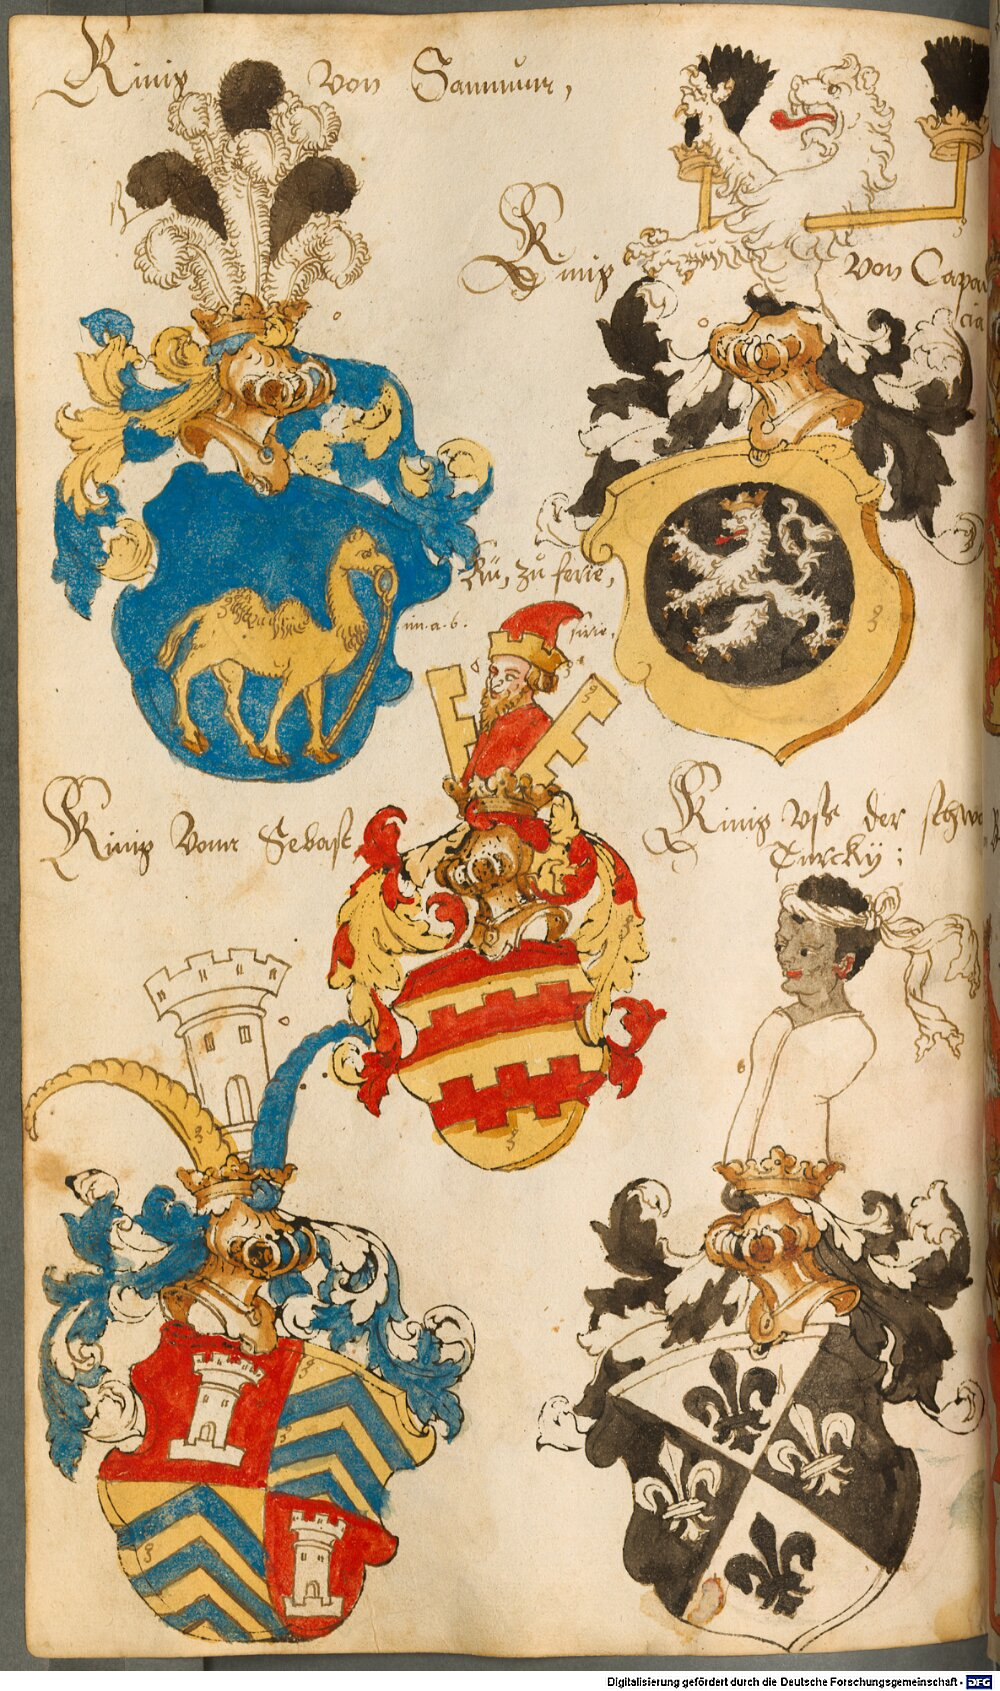 Künig von Sammur,
Künig von Capad
cia
Kü, zu ferie,
Künig vomr Sebast
Künig vss der schwa
Turcky:
Digitalisierung gefördert durch die Deutsche Forschungsgemeinschaft - DFG